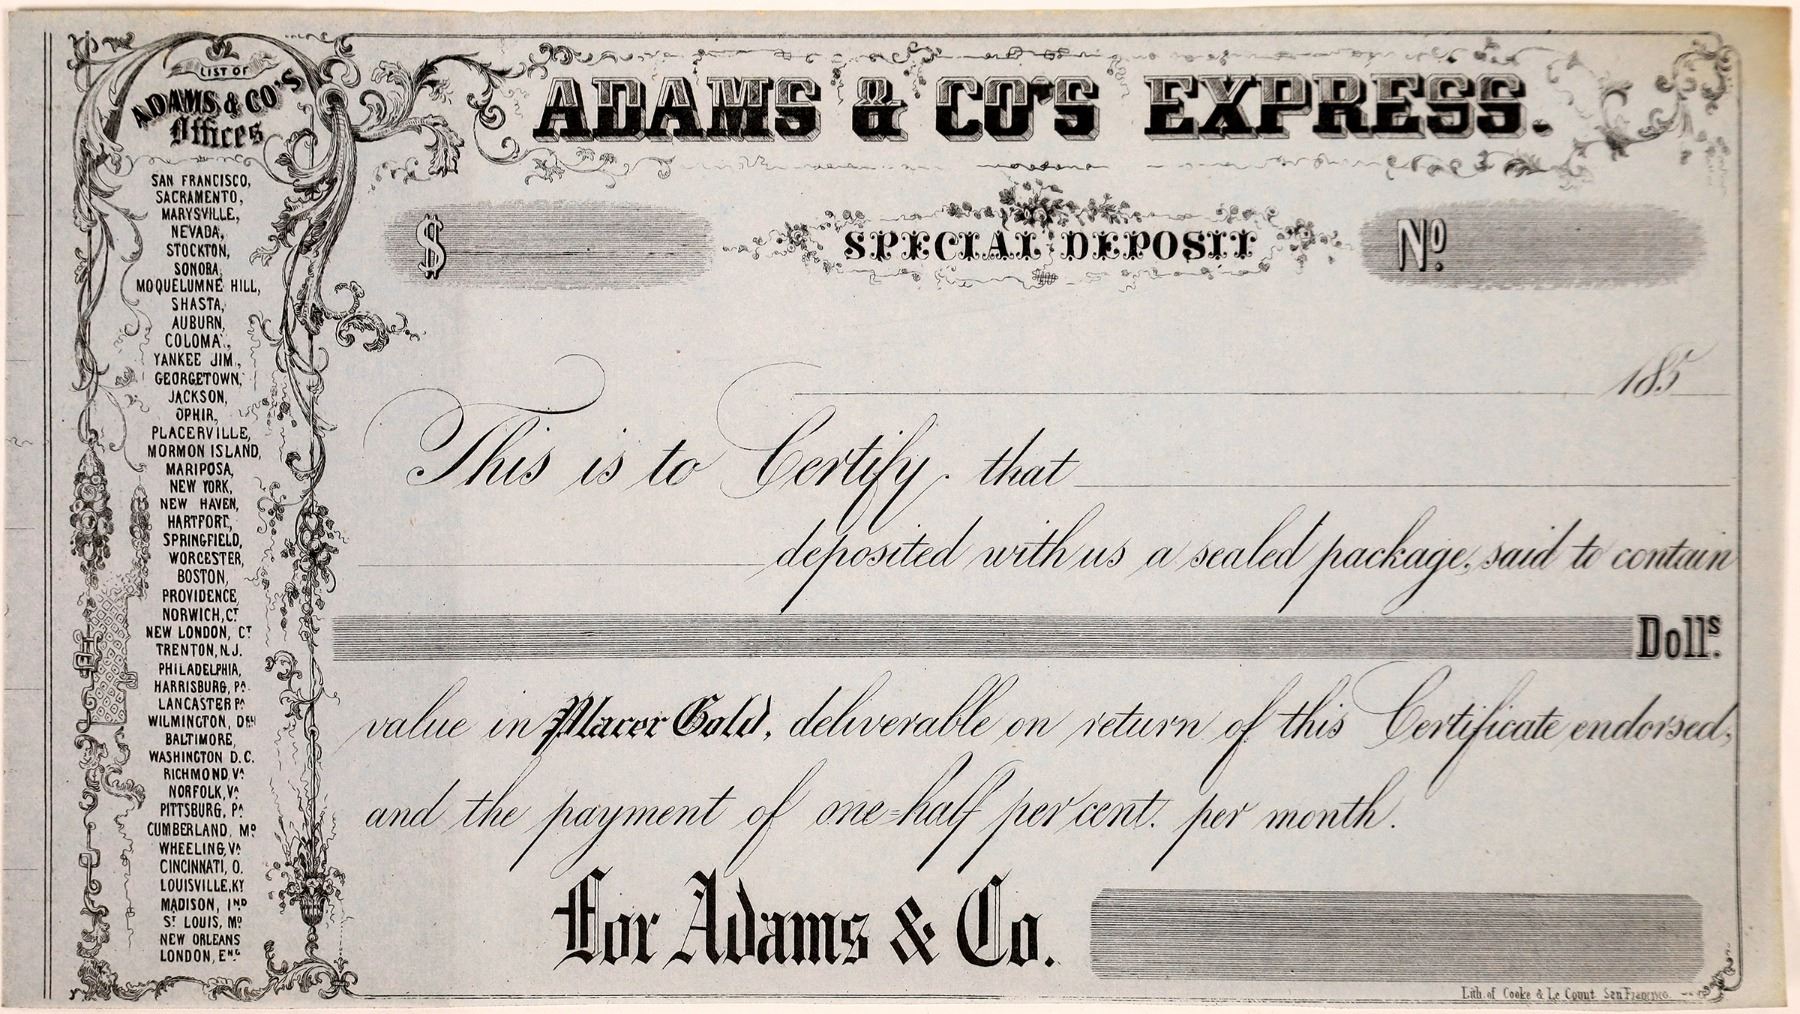 LIST OF
ADAMS & CO'S
Offices
SAN FRANCISCO,
SACRAMENTO,
MARYSVILLE,
NEVADA,
STOCKTON,
SONORA,
MOQUELUMNE HILL,
SHASTA,
AUBURN,
COLOMA,
YANKEE JIM,
GEORGETOWN,
JACKSON,
OPHIR,
PLACERVILLE,
MORMON ISLAND,
MARIPOSA,
NEW YORK,
NEW HAVEN,
HARTFORT,
SPRINGFIELD,
WORCESTER,
BOSTON,
PROVIDENCE,
NORWICH, CT
NEW LONDON, CT
TRENTON, N.J.
PHILADELPHIA,
HARRISBURG, PA
LANCASTER PA
WILMINGTON, DEL
BALTIMORE,
WASHINGTON D.C.
RICHMOND, VA
NORFOLK, VA
PITTSBURG, PA
CUMBERLAND, MD
WHEELING, VA
CINCINNATI, O.
LOUISVILLE, KY
MADISON, IND
ST LOUIS, MO
NEW ORLEANS
LONDON, ENG
ADAMS & CO'S EXPRESS.
$ SPECIAL DEPOSIT No.
185
This is to Certify that
deposited with us a sealed package, said to contain
Dolls.
value in Placer Gold, deliverable on return of this Certificate endorsed,
and the payment of one-half per cent. per month.
For Adams & Co.
Lith. of Cooke & Le Count. San Francisco.